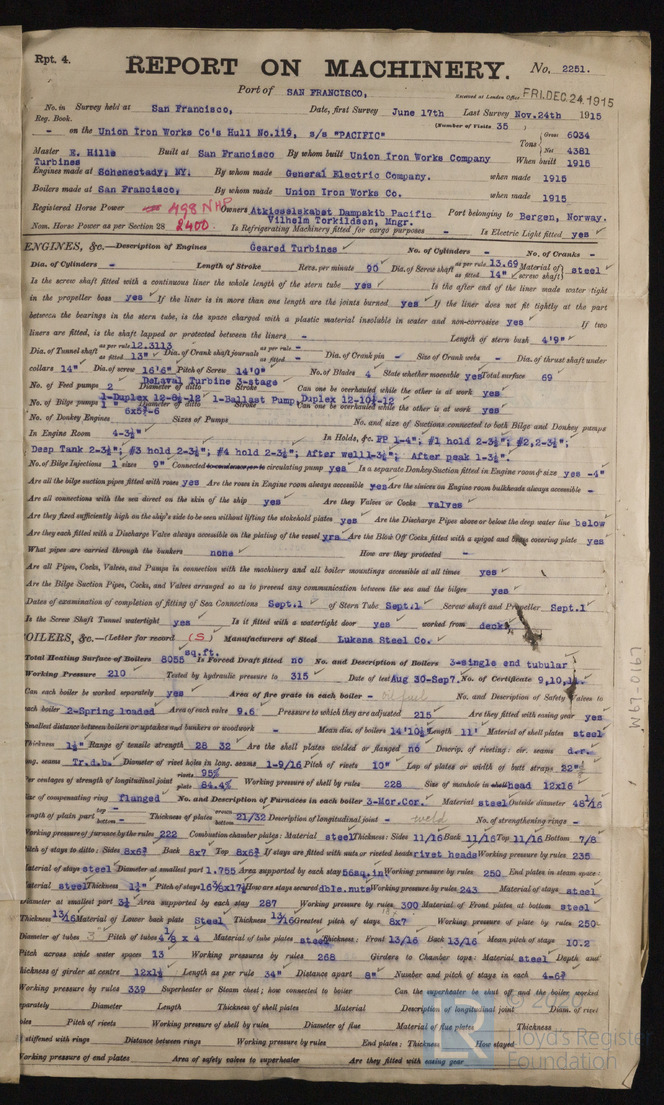 Rpt. 4.
REPORT ON MACHINERY. No. 2251.
Port of SAN FRANCISCO, Received at London Office FRI. DEC 24. 1915
No. in Survey held at San Francisco, Date, first Survey June 17th Last Survey Nov. 24th 1915
Reg. Book. (Number of Visits 35)
- on the Union Iron Works Co's Hull No.119, s/s "PACIFIC" Tons Gross 6034 Net 4381
Master E. Hills Built at San Francisco By whom built Union Iron Works Company When built 1915
Turbines
Engines made at Schenectady, NY. By whom made General Electric Company. when made 1915
Boilers made at San Francisco, By whom made Union Iron Works Co. when made 1915
Registered Horse Power 498 NHP Owners Atkieselskabet Dampskib Pacific Port belonging to Bergen, Norway.
Vilhelm Torkildsen, Mngr.
Nom. Horse Power as per Section 28 2400 Is Refrigerating Machinery fitted for cargo purposes - Is Electric Light fitted yes
ENGINES, &c.—Description of Engines Geared Turbines No. of Cylinders - No. of Cranks -
Dia. of Cylinders - Length of Stroke Revs. per minute 90 Dia. of Screw shaft as per rule 13.69 as fitted 14" Material of screw shaft steel
Is the screw shaft fitted with a continuous liner the whole length of the stern tube yes Is the after end of the liner made water tight
in the propeller boss yes If the liner is in more than one length are the joints burned yes If the liner does not fit tightly at the part
between the bearings in the stern tube, is the space charged with a plastic material insoluble in water and non-corrosive yes If two
liners are fitted, is the shaft lapped or protected between the liners - Length of stern bush 4'9"
Dia. of Tunnel shaft as per rule 12.3113 as fitted 13" Dia. of Crank shaft journals as per rule - as fitted - Dia. of Crank pin - Size of Crank webs - Dia. of thrust shaft under
collars 14" Dia. of screw 16'6" Pitch of Screw 14'0" No. of Blades 4 State whether moveable yes Total surface 69
No. of Feed pumps 2 DeLaval Turbine 3-stage Diameter of ditto Stroke Can one be overhauled while the other is at work yes
No. of Bilge pumps 1-Duplex 12-8½-12 1-Ballast Pump, Duplex 12-10½-12 Diameter of ditto Stroke Can one be overhauled while the other is at work yes
No. of Donkey Engines 6x5¾-6 Sizes of Pumps No. and size of Suctions connected to both Bilge and Donkey pumps
In Engine Room 4-3½" In Holds, &c. FP 1-4"; #1 hold 2-3½"; #2, 2-3½";
Deep Tank 2-3½"; #3 hold 2-3½"; #4 hold 2-3½"; After well 1-3½"; After peak 1-3½".
No. of Bilge Injections 1 sizes 9" Connected to condenser or to circulating pump yes Is a separate Donkey Suction fitted in Engine room & size yes -4"
Are all the bilge suction pipes fitted with roses yes Are the roses in Engine room always accessible yes Are the sluices on Engine room bulkheads always accessible -
Are all connections with the sea direct on the skin of the ship yes Are they Valves or Cocks valves
Are they fixed sufficiently high on the ship's side to be seen without lifting the stokehold plates yes Are the Discharge Pipes above or below the deep water line below
Are they each fitted with a Discharge Valve always accessible on the plating of the vessel yra Are the Blow Off Cocks fitted with a spigot and brass covering plate yes
What pipes are carried through the bunkers none How are they protected -
Are all Pipes, Cocks, Valves, and Pumps in connection with the machinery and all boiler mountings accessible at all times yes
Are the Bilge Suction Pipes, Cocks, and Valves arranged so as to prevent any communication between the sea and the bilges yes
Dates of examination of completion of fitting of Sea Connections Sept.1 of Stern Tube Sept.1 Screw shaft and Propeller Sept.1
Is the Screw Shaft Tunnel watertight yes Is it fitted with a watertight door yes worked from deck
OILERS, &c.—(Letter for record (S) Manufacturers of Steel Lukens Steel Co.
Total Heating Surface of Boilers 8055 sq.ft. Is Forced Draft fitted no No. and Description of Boilers 3-single end tubular
Working Pressure 210 Tested by hydraulic pressure to 315 Date of test Aug 30-Sep7. No. of Certificate 9,10,11.
Can each boiler be worked separately yes Area of fire grate in each boiler - oil fuel No. and Description of Safety Valves to
each boiler 2-Spring loaded Area of each valve 9.6 Pressure to which they are adjusted 215 Are they fitted with easing gear yes
Smallest distance between boilers or uptakes and bunkers or woodwork - Mean dia. of boilers 14'10½ Length 11' Material of shell plates steel
Thickness 1½" Range of tensile strength 28 32 Are the shell plates welded or flanged no Descrip. of riveting: cir. seams d.r.
long. seams Tr.d.b. Diameter of rivet holes in long. seams 1-9/16 Pitch of rivets 10" Lap of plates or width of butt straps 22"
Per centages of strength of longitudinal joint rivets 95% plate 84.4% Working pressure of shell by rules 228 Size of manhole in shell head 12x16
Size of compensating ring flanged No. and Description of Furnaces in each boiler 3-Mor.Cor. Material steel Outside diameter 48 1/16
Length of plain part top - bottom - Thickness of plates crown bottom 21/32 Description of longitudinal joint - weld No. of strengthening rings -
Working pressure of furnace by the rules 222 Combustion chamber plates: Material steel Thickness: Sides 11/16 Back 11/16 Top 11/16 Bottom 7/8
Pitch of stays to ditto: Sides 8x6¾ Back 8x7 Top 8x6¾ If stays are fitted with nuts or riveted heads rivet heads Working pressure by rules 235
Material of stays steel Diameter at smallest part 1.755 Area supported by each stay 56sq.in Working pressure by rules 250 End plates in steam space:
Material steel Thickness 1¼" Pitch of stays 16¾x17 How are stays secured dble.nuts Working pressure by rules 243 Material of stays steel
Diameter at smallest part 3¼ Area supported by each stay 287 Working pressure by rules 300 Material of Front plates at bottom steel
Thickness 13/16 Material of Lower back plate Steel Thickness 13/16 Greatest pitch of stays 8x7 Working pressure of plate by rules 250
Diameter of tubes 3" Pitch of tubes 4⅛ x 4 Material of tube plates steel Thickness: Front 13/16 Back 13/16 Mean pitch of stays 10.2
Pitch across wide water spaces 13 Working pressures by rules 268 Girders to Chamber tops: Material steel Depth and
thickness of girder at centre 12x1½ Length as per rule 34" Distance apart 8" Number and pitch of stays in each 4-6¾
Working pressure by rules 339 Superheater or Steam chest; how connected to boiler Can the superheater be shut off and the boiler worked
separately Diameter Length Thickness of shell plates Material Description of longitudinal joint Diam. of rivet
holes Pitch of rivets Working pressure of shell by rules Diameter of flue Material of flue plates Thickness
If stiffened with rings Distance between rings Working pressure by rules End plates: Thickness How stayed
Working pressure of end plates Area of safety valves to superheater Are they fitted with easing gear
L910 L9M
© 2020
Lloyd's Register
Foundation